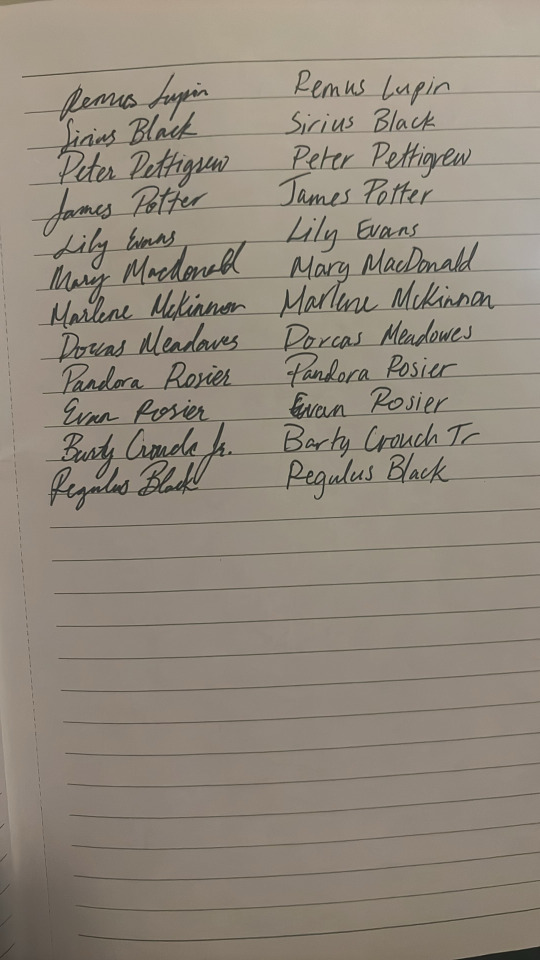 Remus Lupin Remus Lupin
Sirius Black Sirius Black
Peter Pettigrew Peter Pettigrew
James Potter James Potter
Lily Evans Lily Evans
Mary Macdonald Mary MacDonald
Marlene McKinnon Marlene McKinnon
Dorcas Meadowes Dorcas Meadowes
Pandora Rosier Pandora Rosier
Evan Rosier Evan Rosier
Barty Crouch Jr. Barty Crouch Jr
Regulus Black Regulus Black